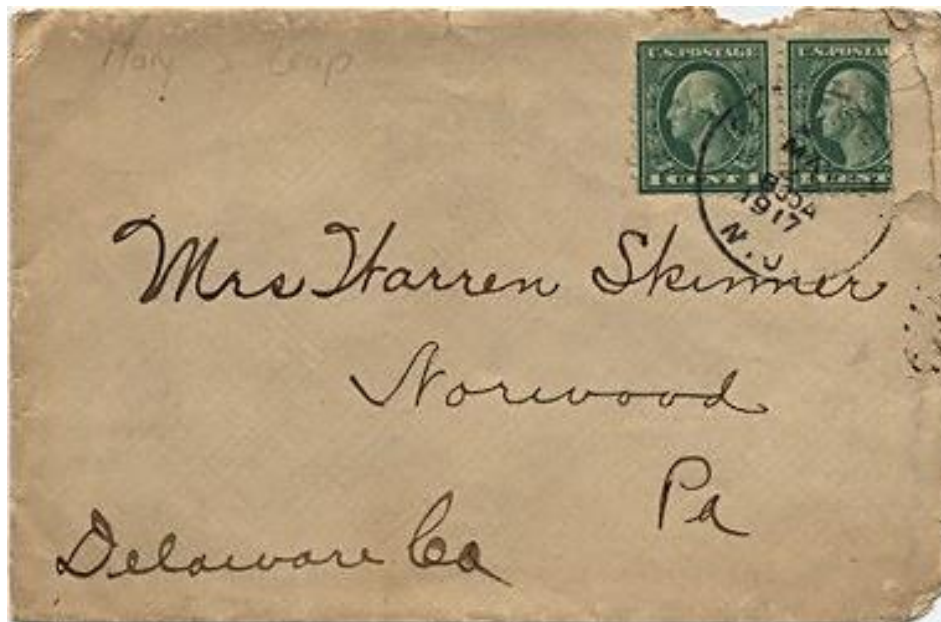 Mary S Leap
U.S. POSTAGE U.S. POSTA
1 CENT 1
MA
830A
1917
N.J
Mrs Warren Skinner
Norwood
Pa
Delaware Co